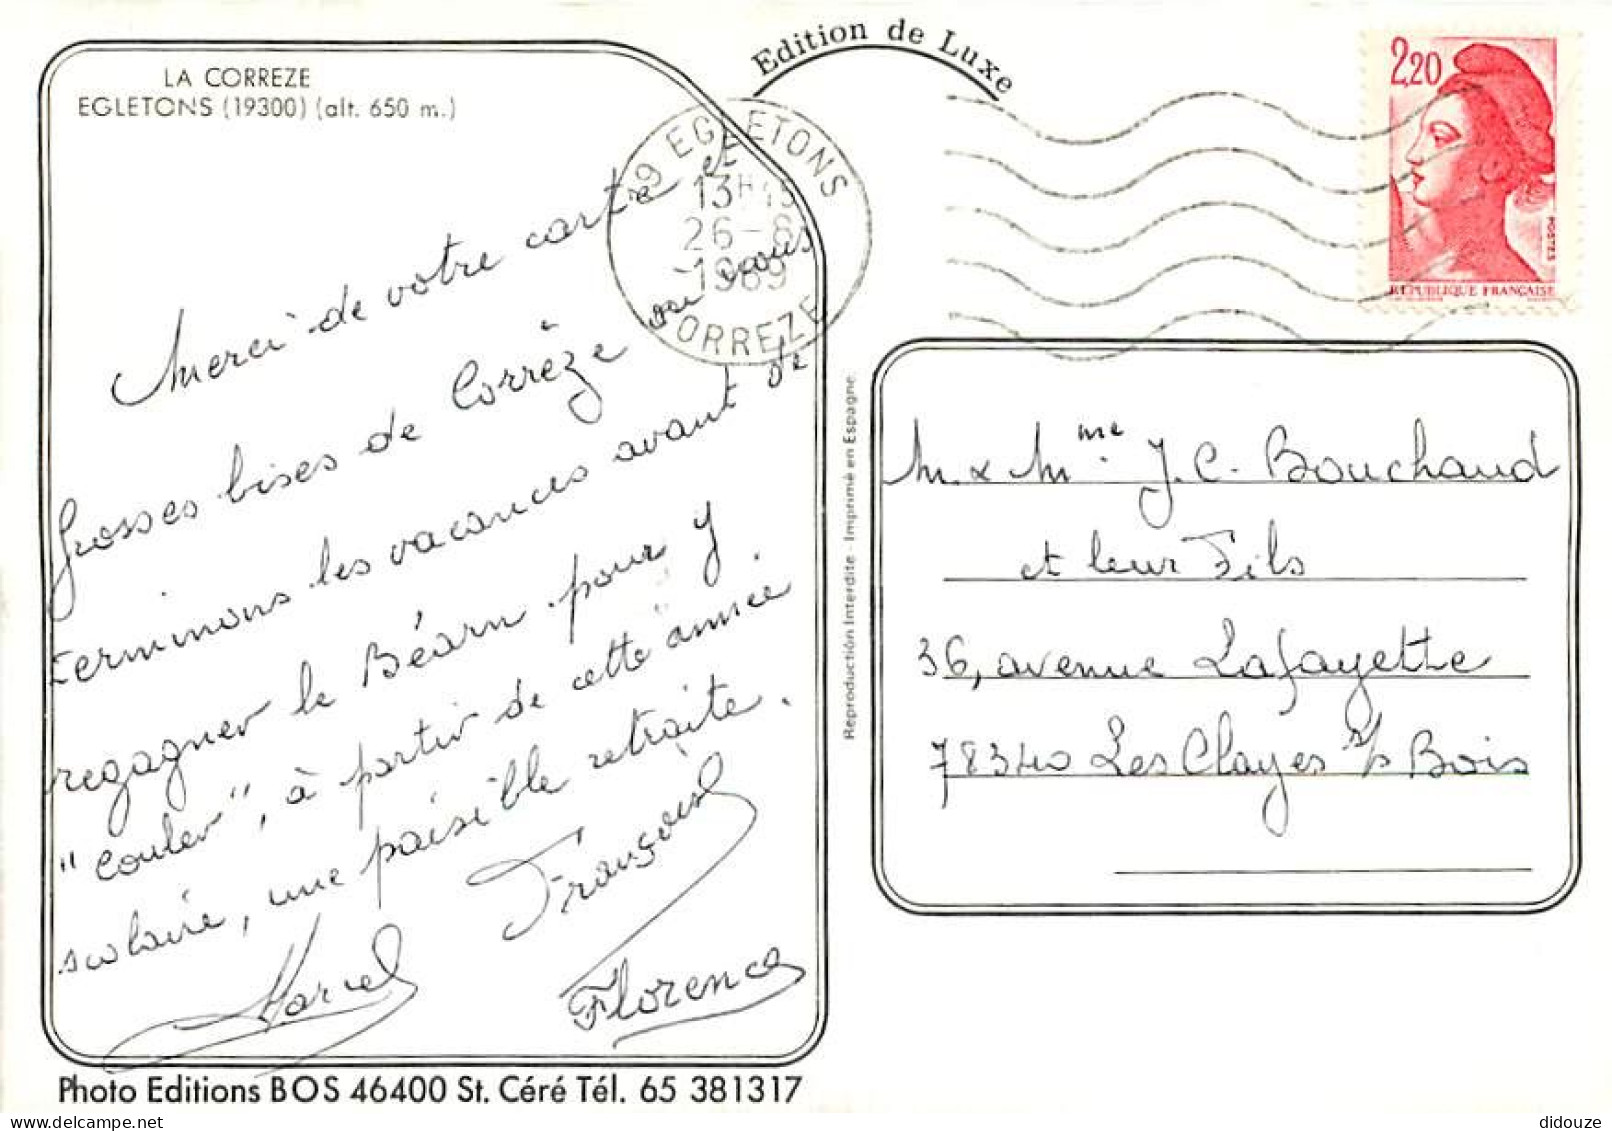 LA CORREZE
EGLETONS (19300) (alt. 650 m.)
Merci de votre carte et
Grosses bises de Corrèze où nous
terminons les vacances avant de
regagner le Béarn pour y
"couler", à partir de cette année
scolaire, une paisible retraite.
Marcel
Françoise
Florence
Photo Editions BOS 46400 St. Céré Tél. 65 381317
Edition de Luxe
19 EGLETONS
13H15
26-8
1989
CORREZE
Reproduction Interdite - Imprimé en Espagne
2,20
POSTES
REPUBLIQUE FRANÇAISE
M. & Mme J.C. Bouchaud
et leur Fils
36, avenue Lafayette
78340 Les Clayes s/s Bois
didouze